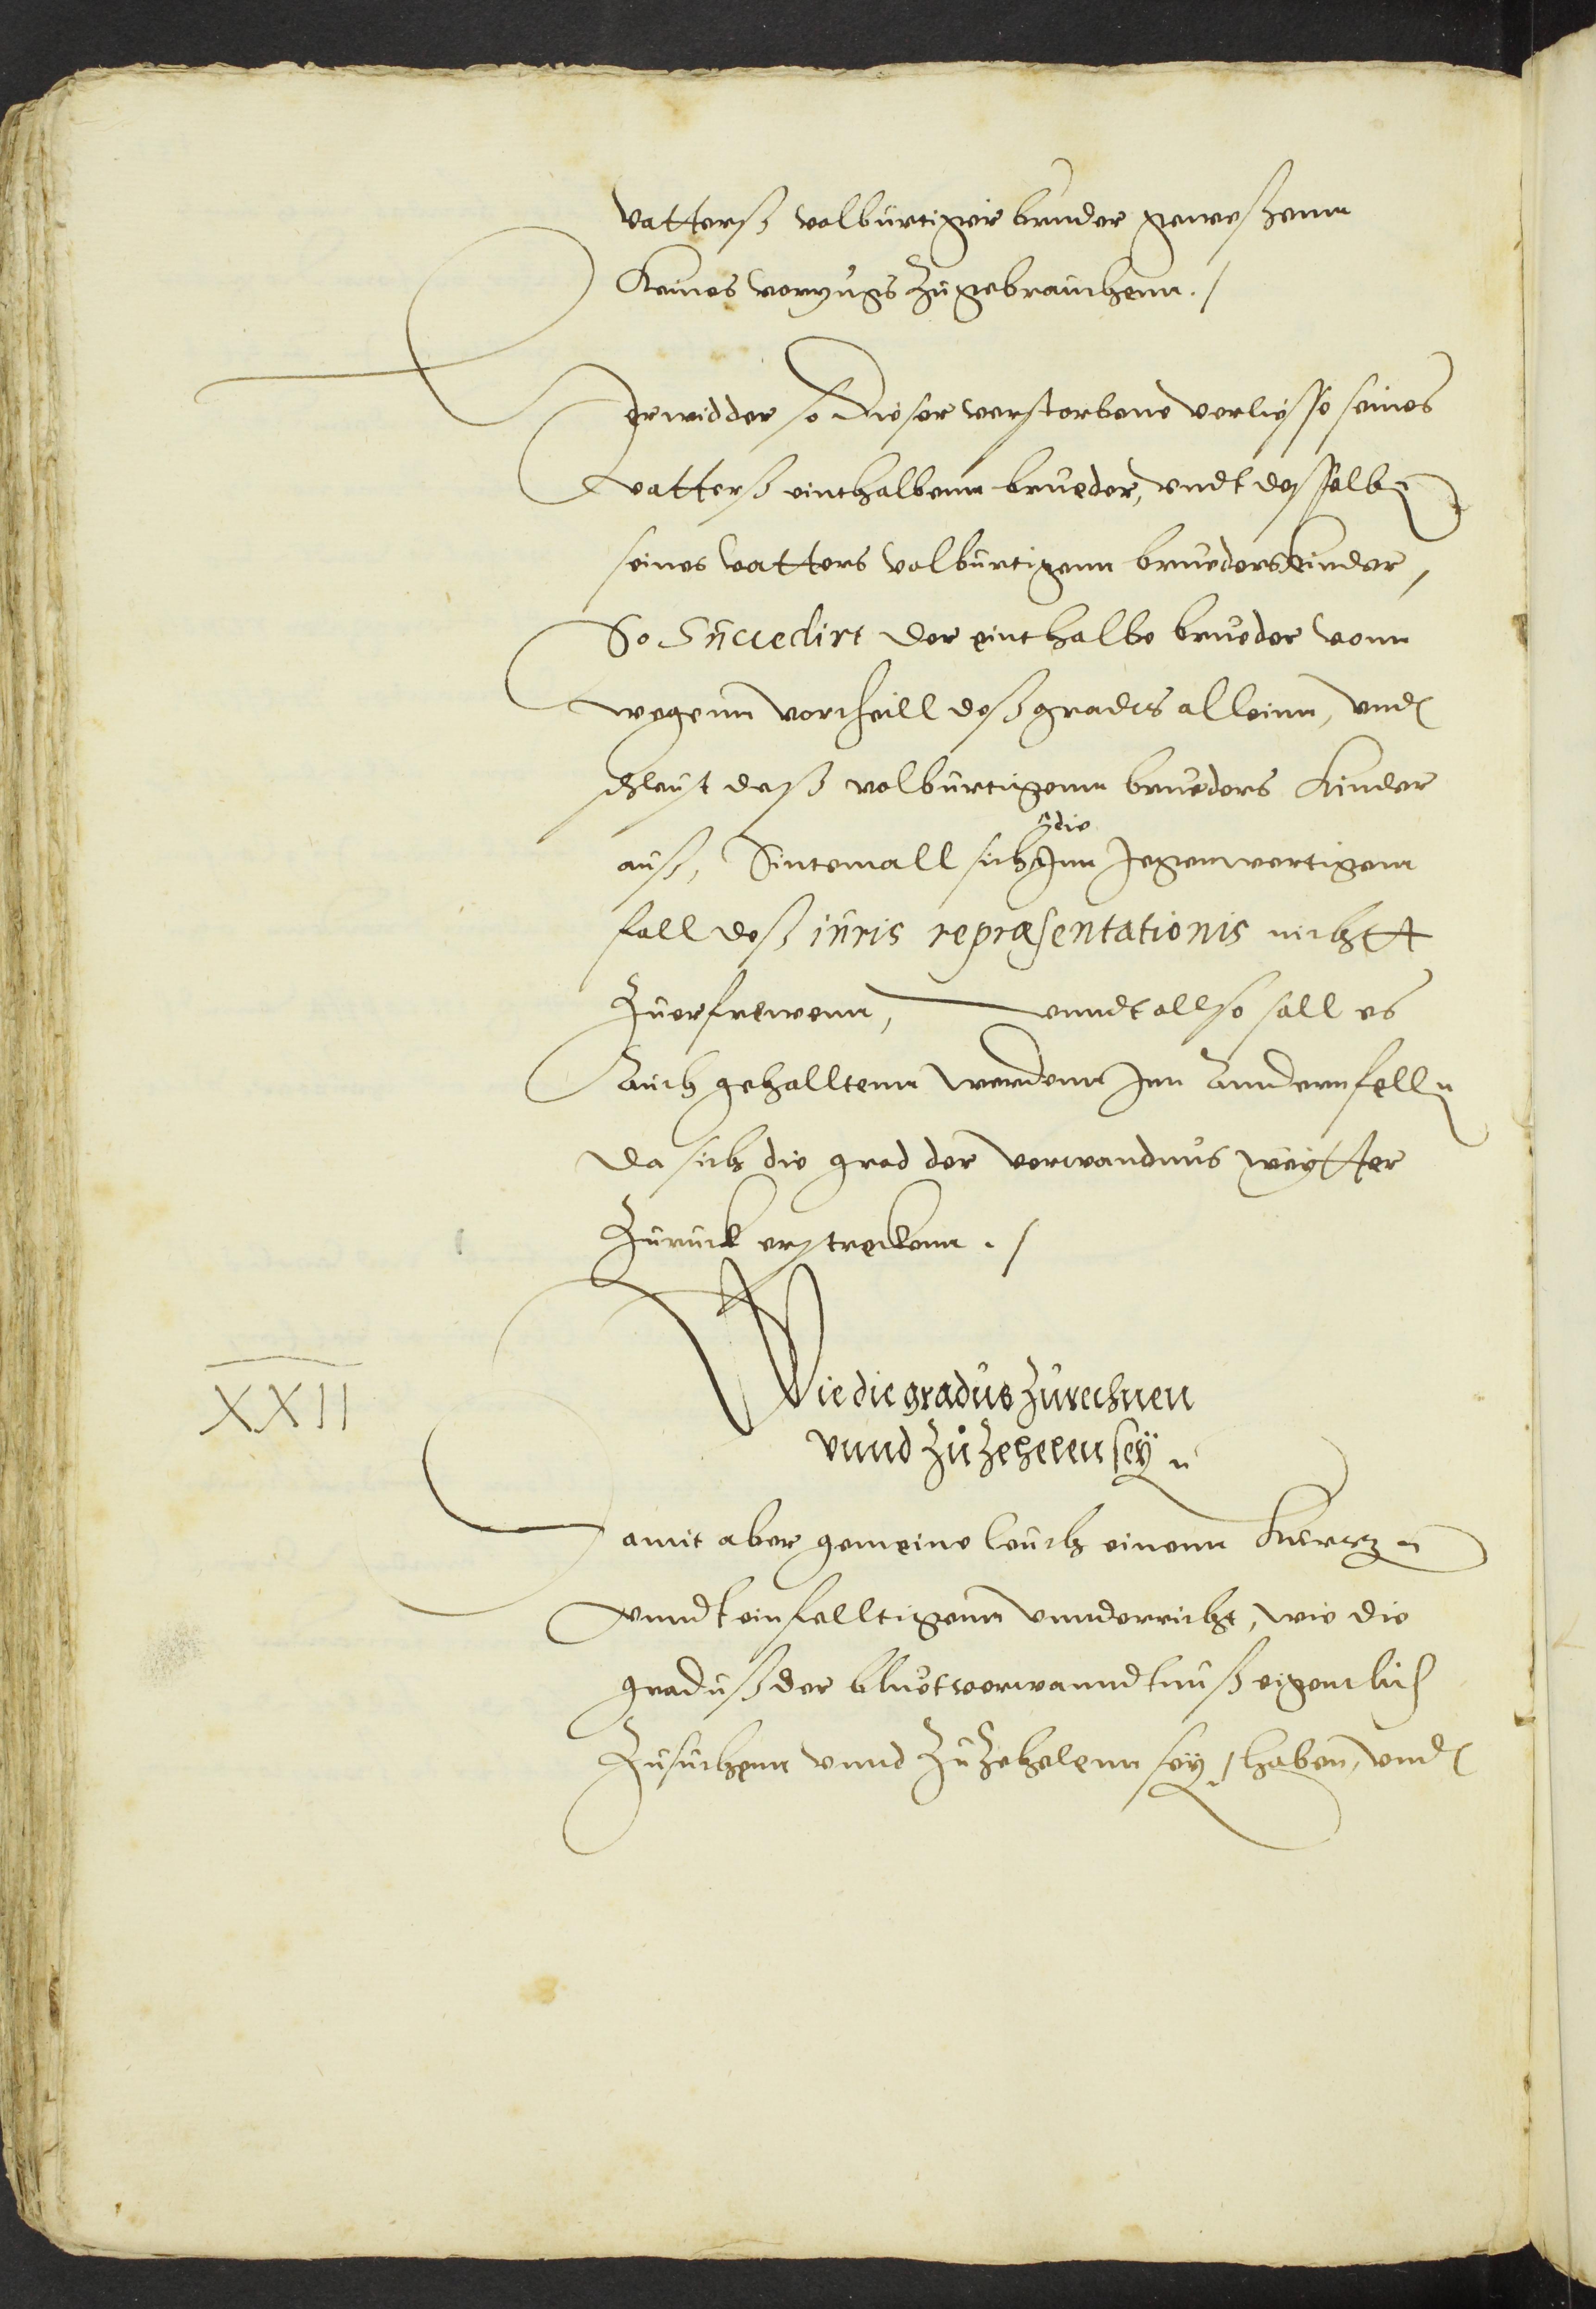 vatterß volbürtiger bruder geweßenn
keines vorzugs zugebrauchenn ./
Herwidder so dieser verstorbene verliesse seines
vatterß einthalbenn brueder, vndt desselben
seines vatters volbürtigenn brueders kinder,
So Succedirt der einthalbe brueder vonn
wegenn vortheill deß gradts alleinn, vnd
schleust deß volbürtigenn brueders kinder
auß, Sintemall sich die Inn Jegenwertigem
fall deß iuris repræsentationis nichtt
Zuerfrewenn, vnndt allso sall es
auch gehalltenn werdenn Inn anndern felln
da sich die grad der verwandnus weytter
Zuruck erstreckenn ./
XXII
Wie die gradus zu rechnen
vnnd zu zehelen sey
Damit aber gemeine leuth einenn kurtzen
vnndt einfelltigenn vnnderricht, wie die
graduß der bluetverwanndtnuß eigentlich
Zusuchenn vnnd Zu Zehelenn sey, haben, vnd